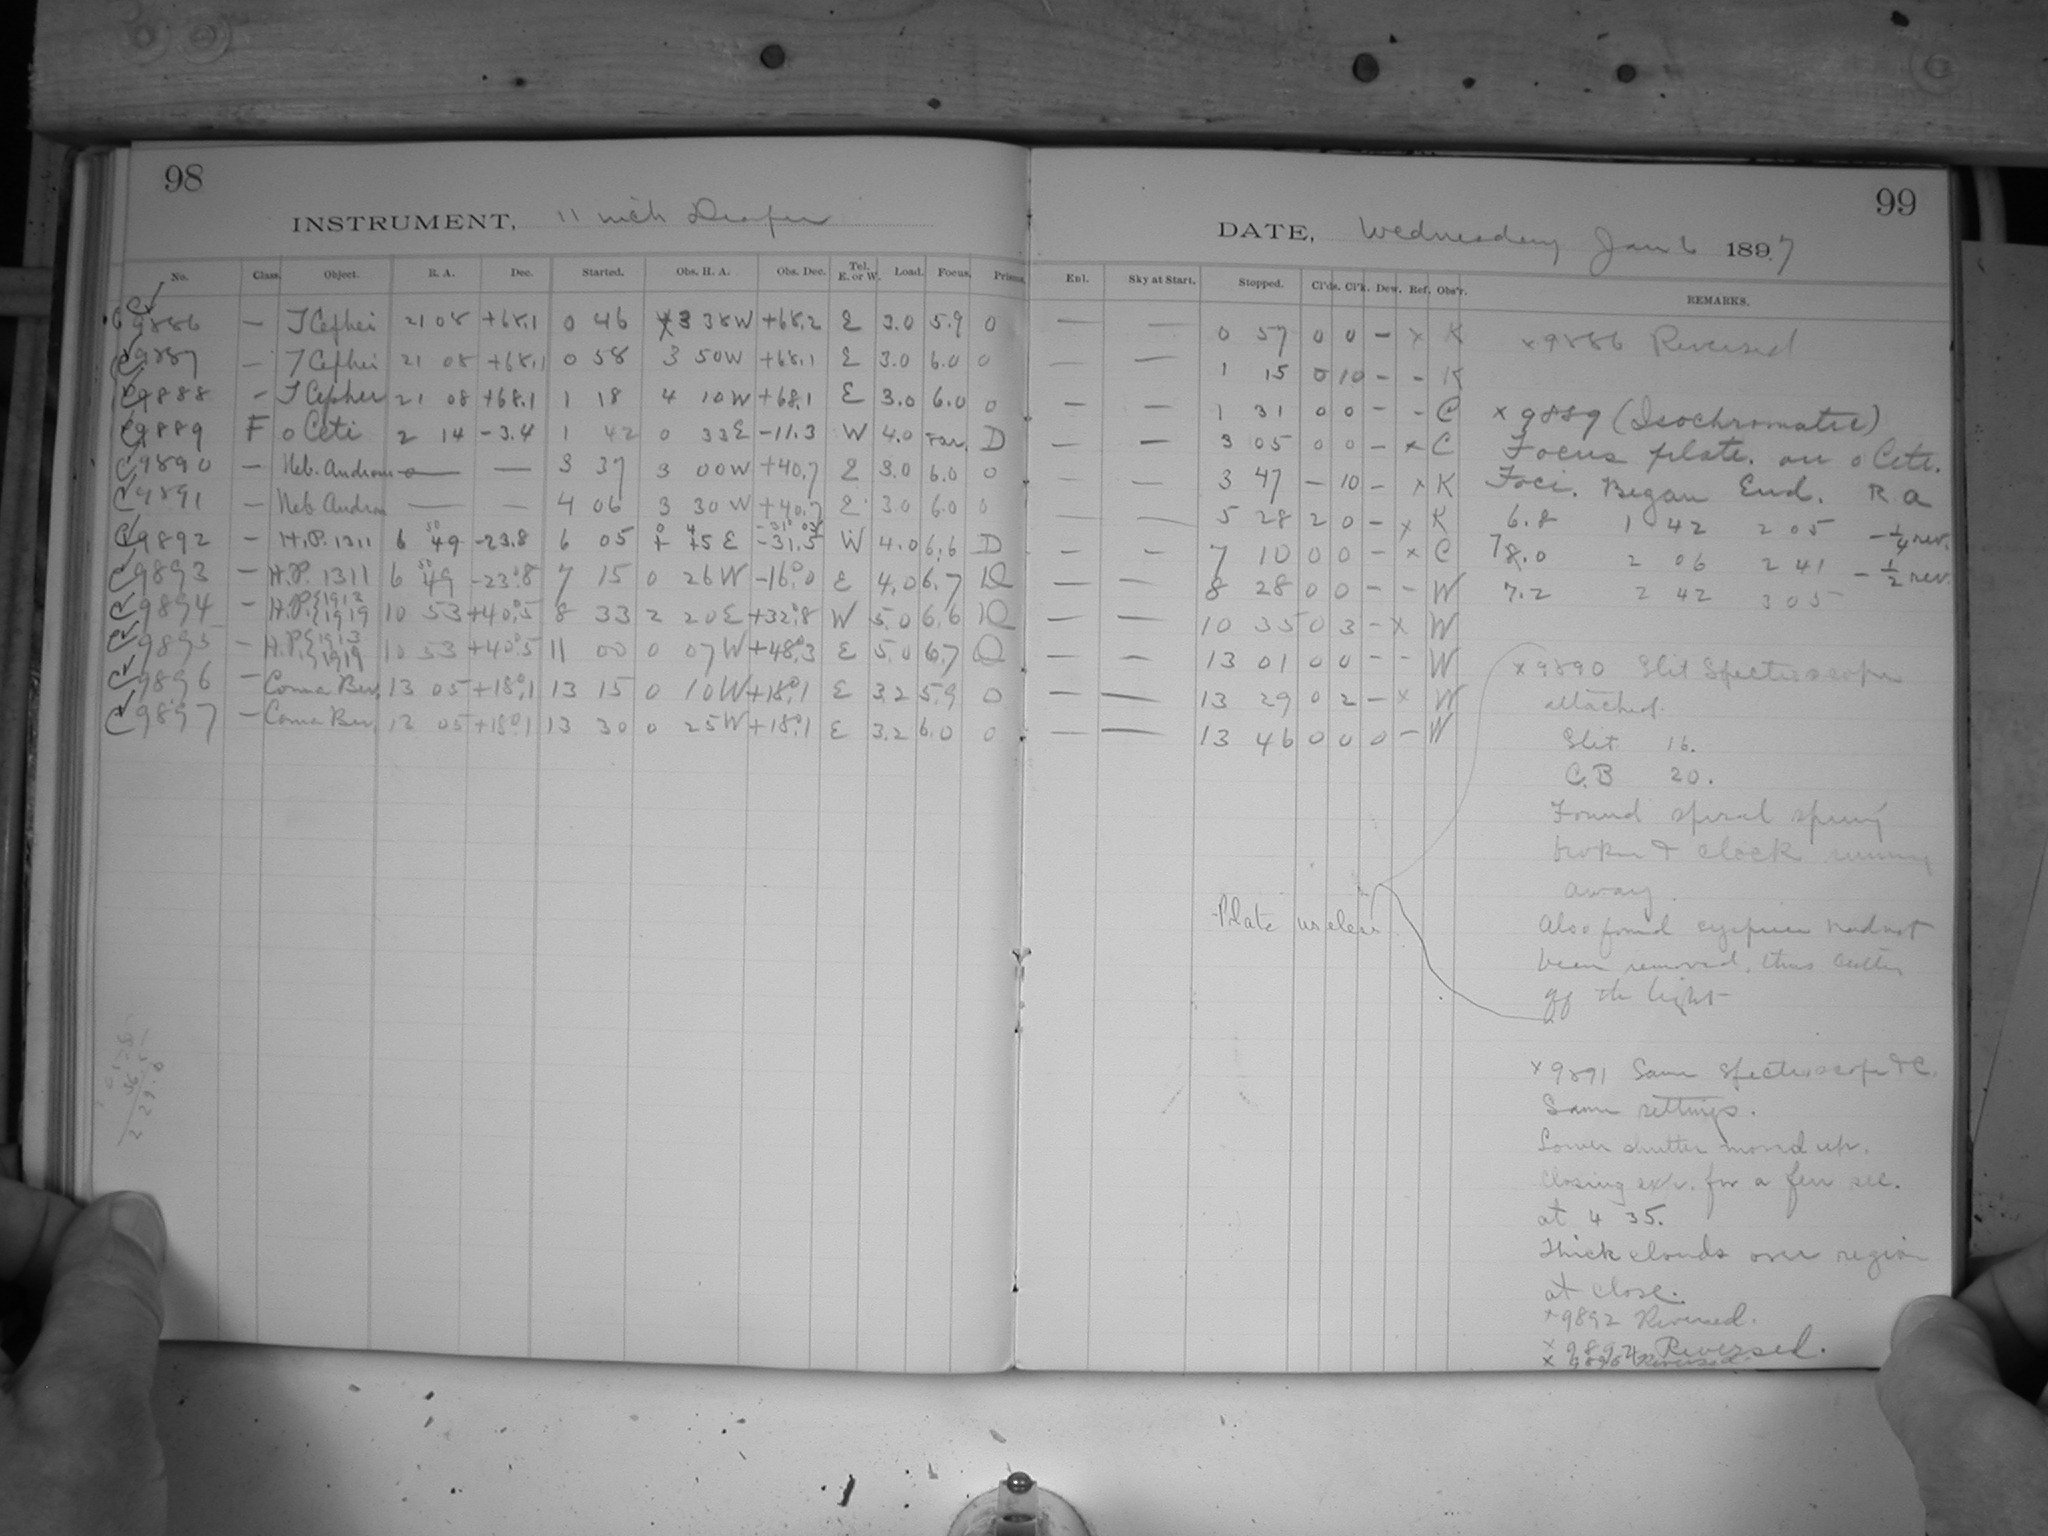 98
INSTRUMENT, 11 inch Draper
No. Class. Object. R. A. Dec. Started. Obs. H. A. Obs. Dec. Tel. E. or W. Load. Focus. Prisms.
C 9886 — T Cephei 21 08 +68.1 0 46 3 38 W +68.2 E 3.0 5.9 0
C 9887 — T Cephei 21 08 +68.1 0 58 3 50 W +68.1 E 3.0 6.0 0
C 9888 — T Cephei 21 08 +68.1 1 18 4 10 W +68.1 E 3.0 6.0 0
C 9889 F o Ceti 2 14 -3.4 1 42 0 33 E -11.3 W 4.0 Var. D
C 9890 — Neb. Androm — — 3 37 3 00 W +40.7 E 3.0 6.0 0
C 9891 — Neb. Androm — — 4 06 3 30 W +40.7 E 3.0 6.0 0
C 9892 — H.P. 1311 6 49 -23.8 6 05 45 E -31.5 W 4.0 6.6 D
C 9893 — H.P. 1311 6 49 -23.8 7 15 0 26 W -16.0 E 4.0 6.7 D
C 9894 — H.P. { 1913 1919 10 53 +40.5 8 33 2 20 E +32.8 W 5.0 6.6 D
C 9895 — H.P. { 1913 1919 10 53 +40.5 11 00 0 07 W +48.3 E 5.0 6.7 D
C 9896 — Coma Ber. 13 05 +18.1 13 15 0 10 W +18.1 E 3.2 5.9 0
C 9897 — Coma Ber. 13 05 +18.1 13 30 0 25 W +18.1 E 3.2 6.0 0
99
DATE, Wednesday Jan 6 1897
Enl. Sky at Start. Stopped. Cl'ds. Cl'k. Dew. Ref. Obs'r. REMARKS.
— — 0 57 0 0 — x K
— — 1 15 0 10 — — K
— — 1 31 0 0 — — C
— — 3 05 0 0 — x C
— — 3 47 — 10 — x K
— — 5 28 2 0 — x K
— — 7 10 0 0 — x C
— — 8 28 0 0 — — W
— — 10 35 0 3 — x W
— — 13 01 0 0 — — W
— — 13 29 0 2 — x W
— — 13 46 0 0 0 — W
x 9886 Reversed
x 9889 (Isochromatic)
Focus plate. on o Ceti.
Foci. Began End. R a
6.8 1 42 2 05 -1/4 rev.
8.0 2 06 2 41 -1/2 rev.
7.2 2 42 3 05
x 9890 Slit Spectroscope
attached.
Slit 16.
C.B 20.
Found spiral spring
broken & clock running
away.
Also found eyepiece had not
been removed, thus cutting
off the light
Plate useless
x 9891 Same Spectroscope & C.
Same settings.
Lower shutter moved up.
closing exp. for a few sec.
at 4 35.
Thick clouds over region
at close.
x 9892 Reversed.
x 9894 Reversed.